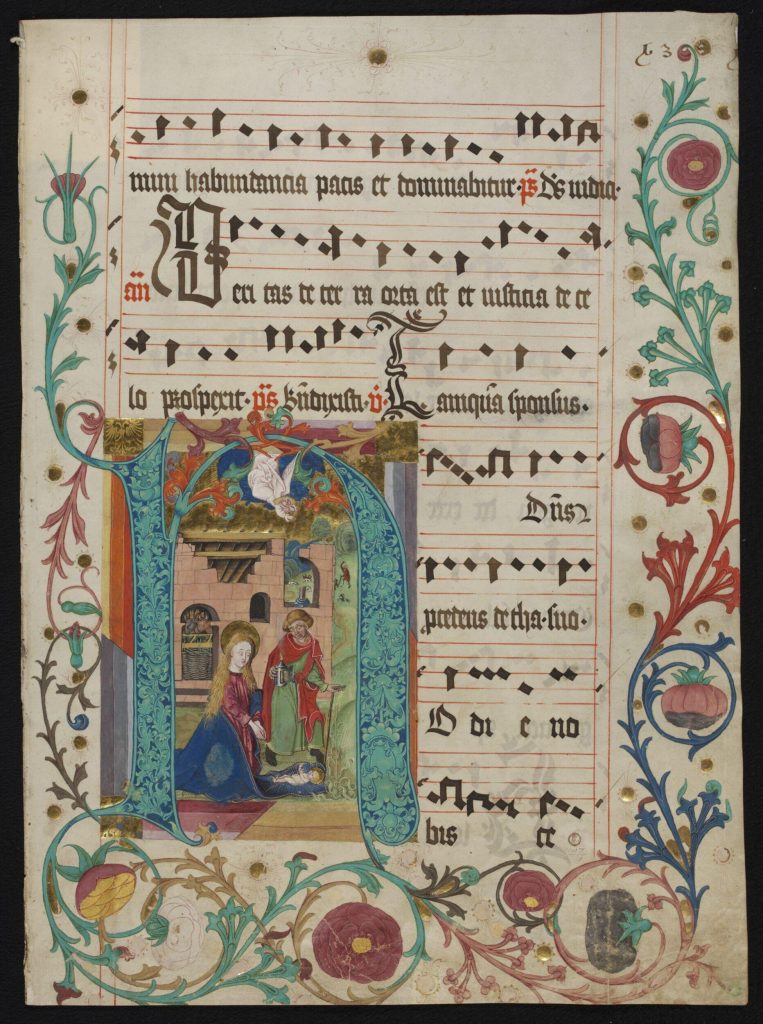 mini habundancia pacis et dominabitur· ps Ds iudici·
an Veri tas de ter ra orta est et iusticia de ce
lo prospexit· ps Bndixisti· v Tamquam sponsus·
Dns
procedens de tha·suo·
H O di e no
bis ce